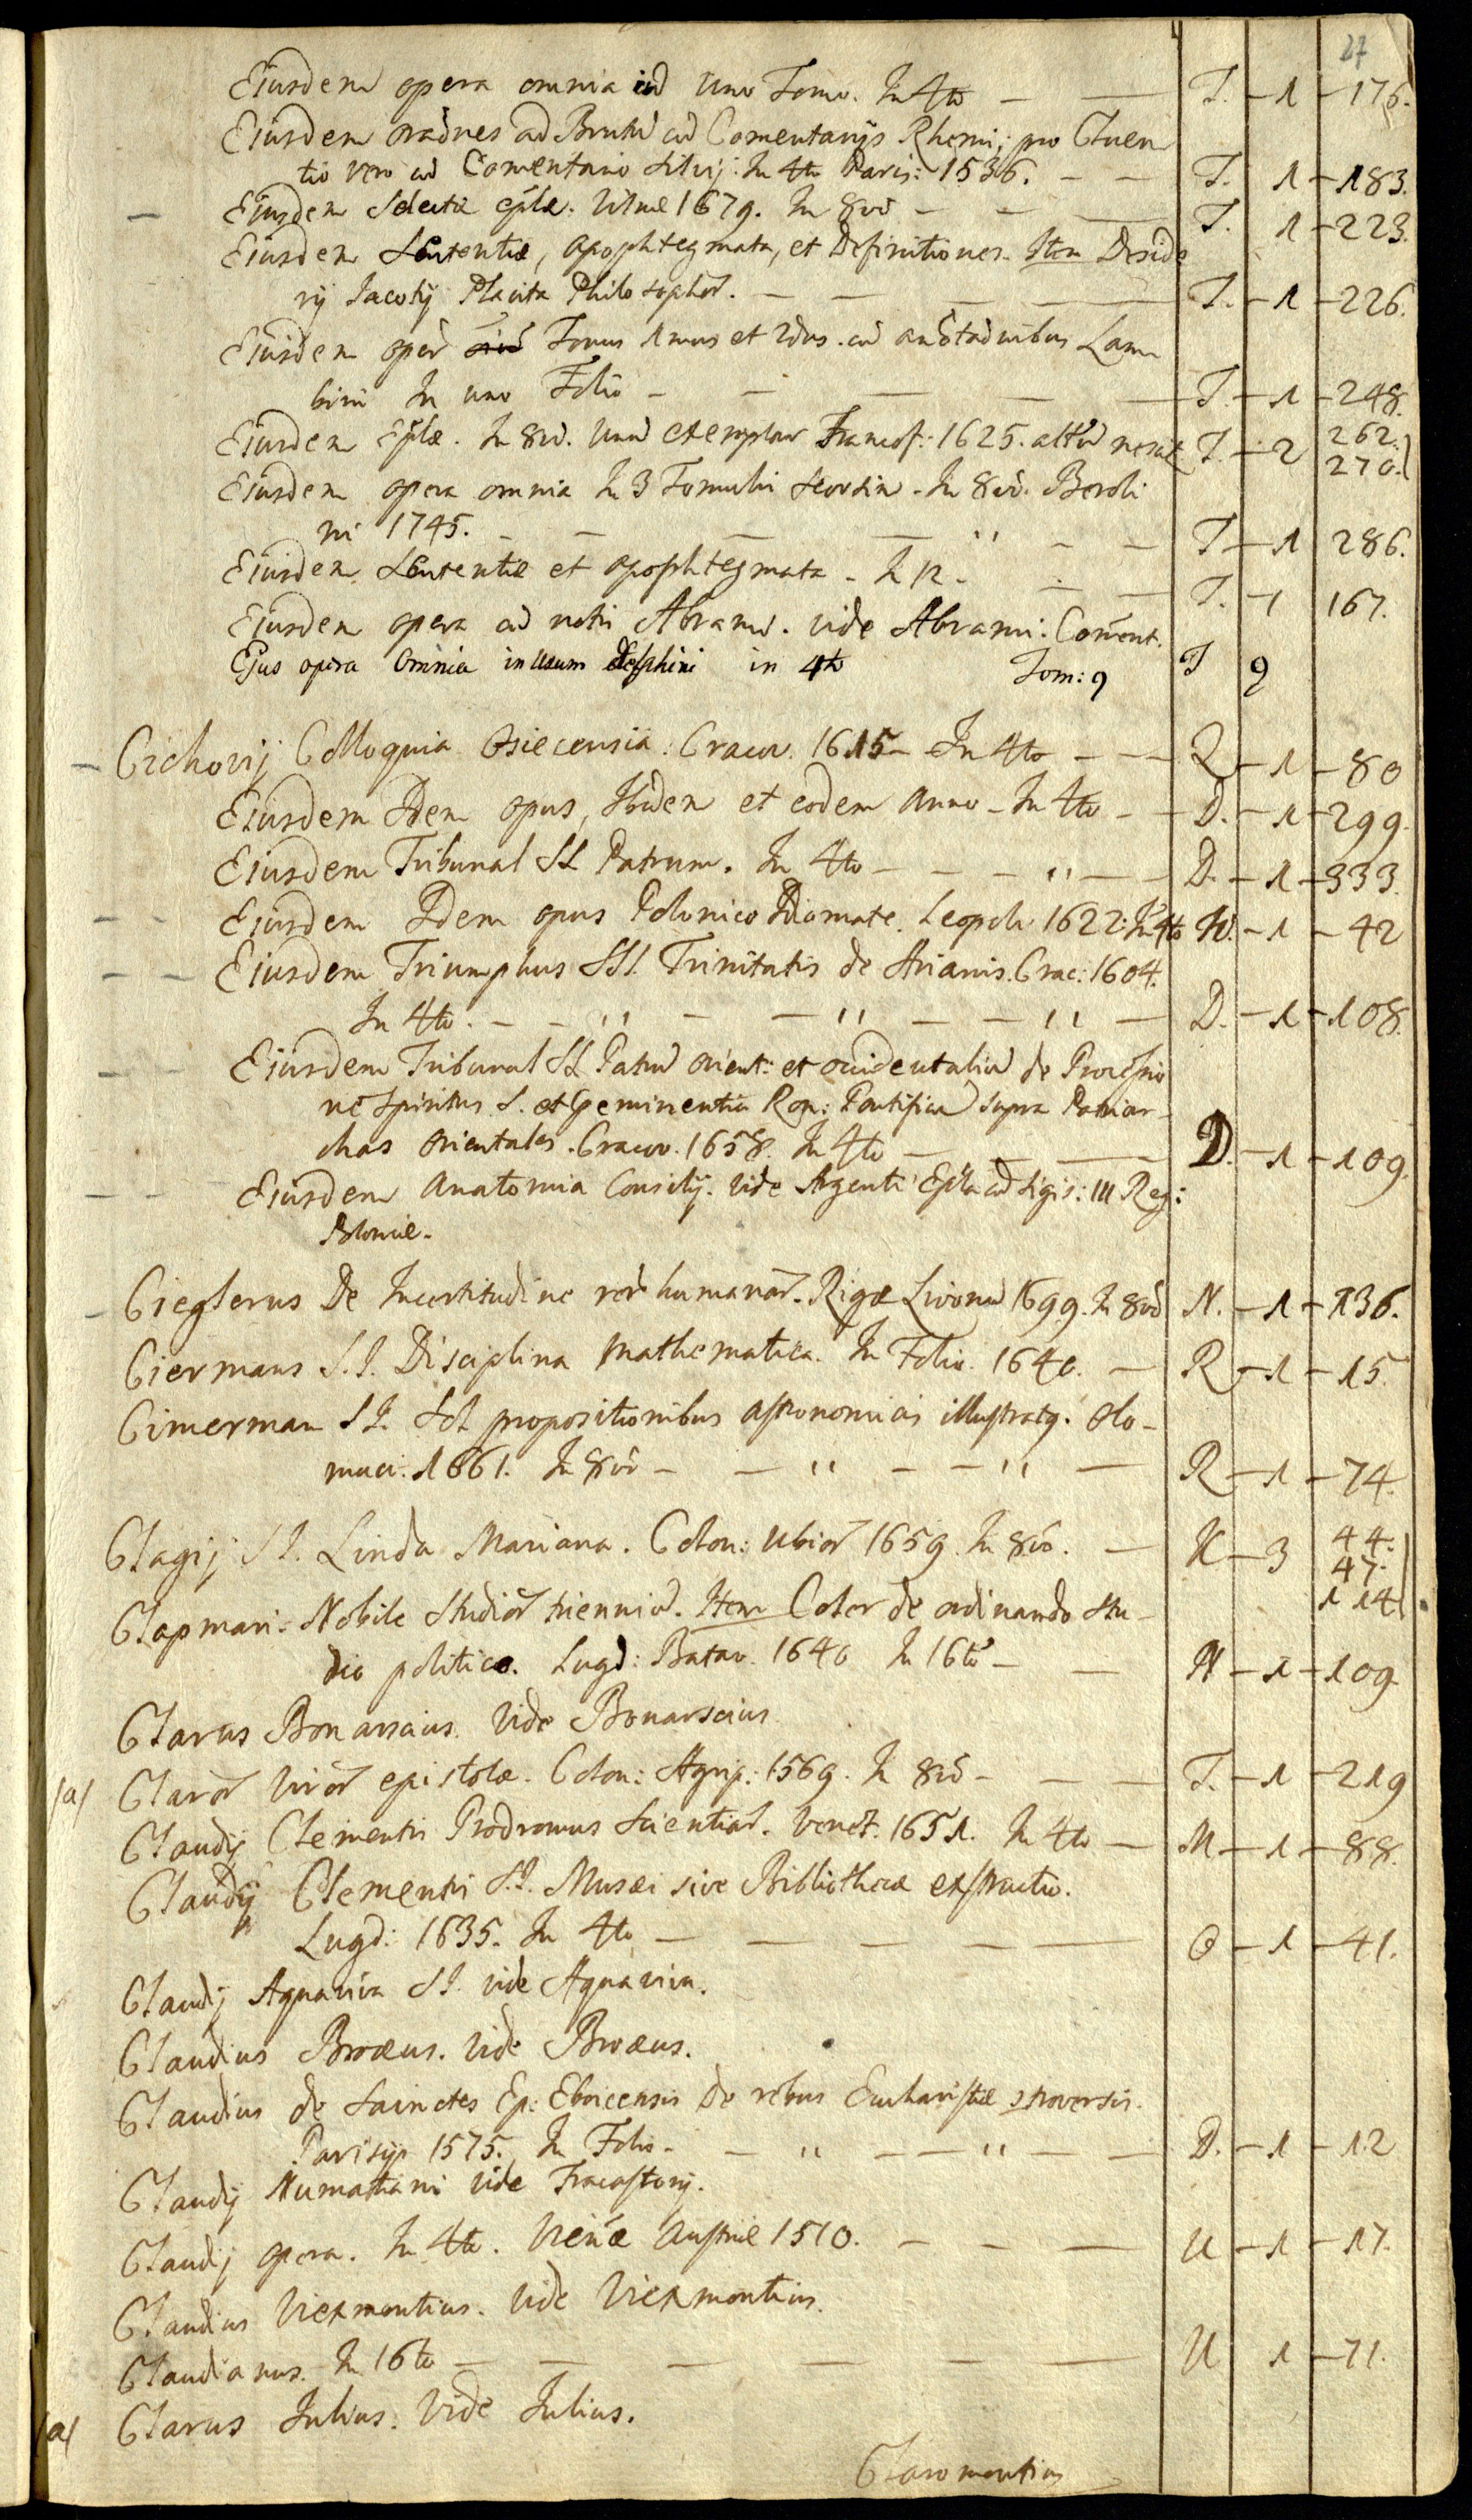 27
Ejusdem opera omnia in Uno Tomo. In 4to — — T. — 1 — 176.
Ejusdem orãones ad Brutũ cũ Comentarijs Rhenij pro Cluen
tio vero cũ Comentario Silvij. In 4to Paris: 1536. — — T. 1 — 183.
— Ejusdem Selectæ eplæ. Vilnæ 1679. In 8vo — — — T. 1 — 223.
Ejusdem Sententiæ, apophtegmata, et Definitiones. Item Deside
rij Jacotij Placita Philosophor̃. — — — — T. — 1 — 226.
Ejusdem oper̃ Tomus 1mus et 2dus. cũ añotãonibus Lam
bini In uno Folio — — — — T. — 1 — 248.
Ejusdem Eplæ. In 8vo. Unũ exemplar Francof: 1625. altr̃ũ nescit T. — 2 262. 270.
Ejusdem opera omnia In 3 Tomulis seorsim. In 8vo. Beroli
ni 1745. — — — — " — — T — 1 286.
Ejusdem Sententiæ et apophtegmata. In 12. — — T. — 1 167.
Ejusdem opera cũ notis Abrami. vide Abrami. Coment.
Ejus opera Omnia in Usum delphini in 4to Tom: 9 T 9
— Cichovij Colloquia Osiecensia: Cracov. 1615 — In 4to — — — Q — 1 — 80
Ejusdem Idem opus, Ibidem et eodem anno — In 4to — — D. — 1 — 299.
Ejusdem Tribunal SS. Patrum. In 4to — — — " — — D. — 1 — 333.
— — Ejusdem Idem opus Polonico Idiomate. Leopoli 1622. In 4to W. — 1 — 42
— — Ejusdem Triumphus SS. Trinitatis de Arianis. Crac: 1604.
In 4to. — — " — — " — — " — D. — 1 — 108.
— — Ejusdem Tribunal SS. Patrũ orient: et occidentaliũ de Processio
ne Spiritus S. et Geminentia Rom: Pontificũ supra Patriar-
chas orientales. Cracov. 1658. In 4to — — — D. — 1 — 109.
— — Ejusdem Anatomia Consilij. vide Argenti Epla ad Sigis: III Reg:
Poloniæ.
— Cieglerus De Incertitudine rer̃ humanar̃. Rigæ Livonũ 1699. In 8vo N. — 1 — 136.
Ciermans S.I. Disciplina Mathematica. In Folio. 1640. — R — 1 — 15.
Cimerman S.I. Sol propositionibus astronomicis illustratg. Olo-
muci: 1661. In 8vo — — " — — " — R — 1 — 74.
Clagij S.I. Linda Mariana. Colon: Ubior̃ 1659. In 8vo. — K — 3 44. 47. 114
Clapmari. Nobile Studior̃ trienniũ. Item Coler de ordinando stu-
dio politico. Lugd: Batav. 1640 In 16to — — N — 1 — 109
Clarus Bonarscius. Vide Bonarscius
/a/ Claror̃ Viror̃ epistolæ. Colon: Agrip: 1569. In 8vo — — — T. — 1 — 219
Claudij Clementis Prodromus Scientiar̃. Venet. 1651. In 4to — M — 1 — 88.
Claudij Clementis S.I. Musæi sive Bibliothecæ exstructio.
Lugd: 1635. In 4to — — — — — O — 1 — 41.
Claudij Aquaviva S.I. vide Aquaviva.
Claudius Broæus. Vide Broæus.
Claudius de Sainctes Ep: Eboicensis De rebus Eucharistiæ ɔtroversis.
Parisijs 1575. In Folio. — " — — " — — D. — 1 — 12
Claudij Numatiani Vide Fracastorij.
Claudij opera. In 4to. Vieñæ Austriæ 1510. — — — U — 1 — 17.
Claudius Viexmontius. Vide Viexmontius.
Claudianus. In 16to — — — — — — U 1 — 71.
/a/ Clarus Julius. Vide Julius.
Claromontius